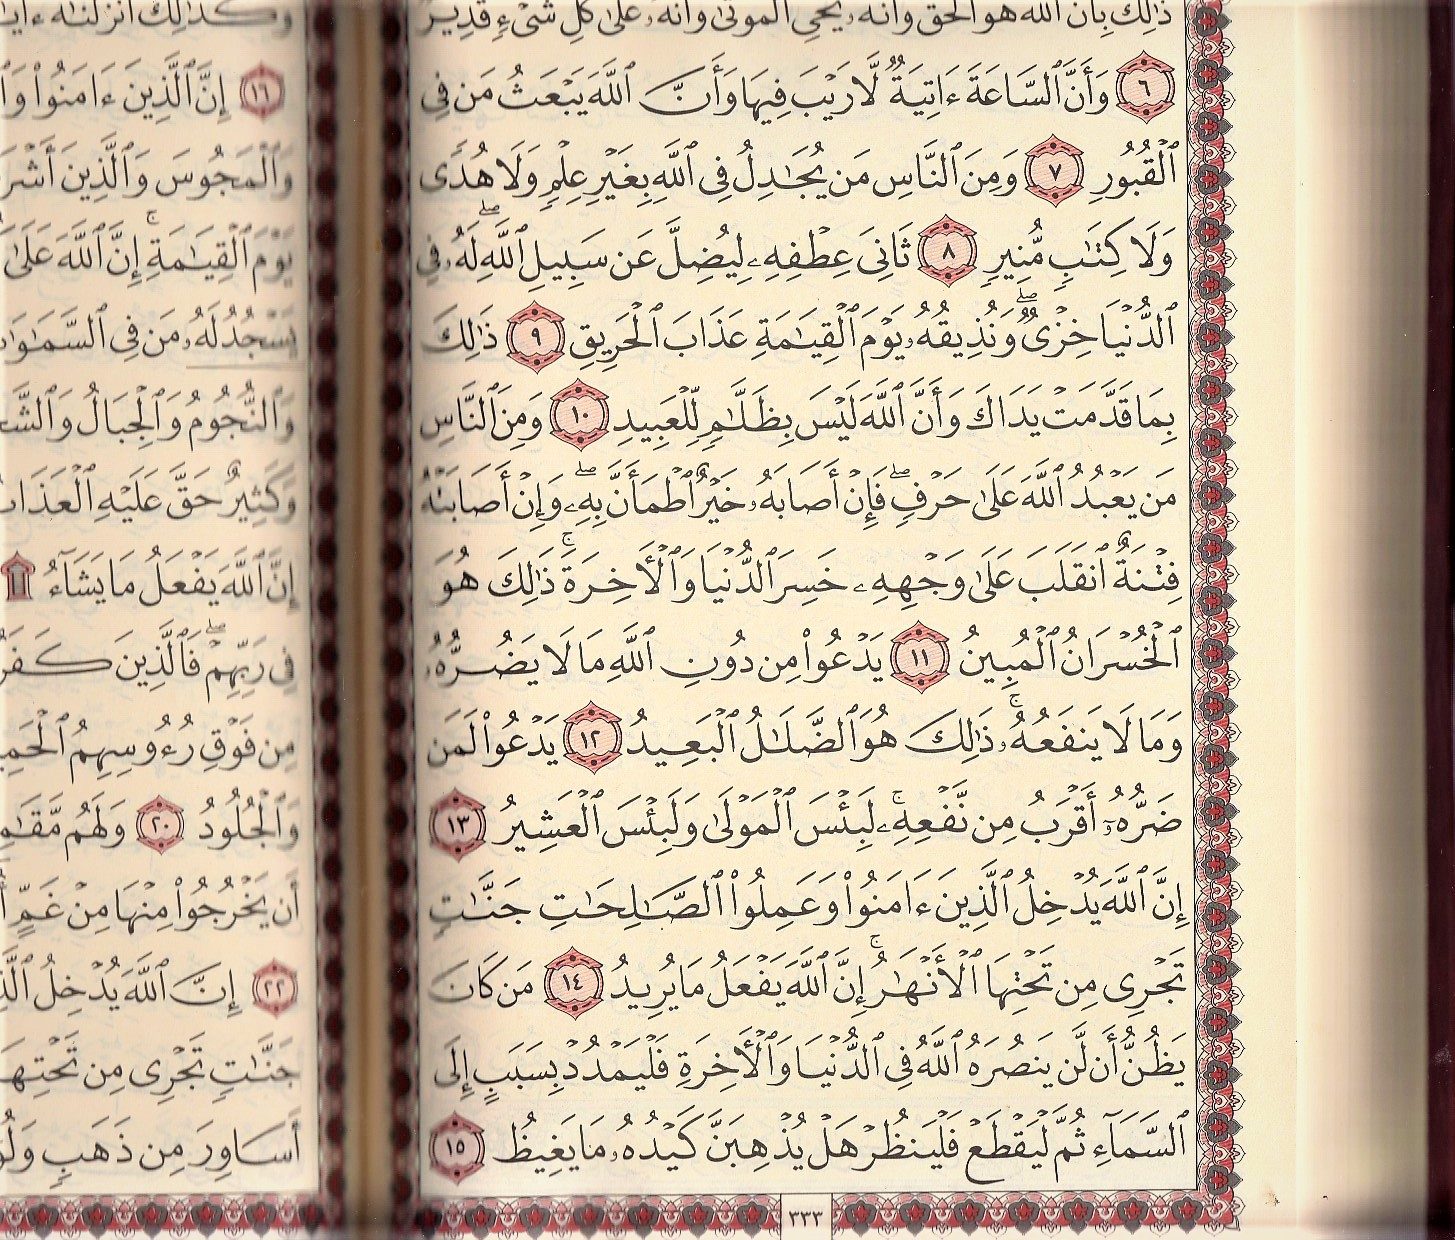 ذَٰلِكَ بِأَنَّ ٱللَّهَ هُوَ ٱلْحَقُّ وَأَنَّهُۥ يُحْىِ ٱلْمَوْتَىٰ وَأَنَّهُۥ عَلَىٰ كُلِّ شَىْءٍ قَدِيرٌ
٦ وَأَنَّ ٱلسَّاعَةَ ءَاتِيَةٌ لَّا رَيْبَ فِيهَا وَأَنَّ ٱللَّهَ يَبْعَثُ مَن فِى
ٱلْقُبُورِ ٧ وَمِنَ ٱلنَّاسِ مَن يُجَٰدِلُ فِى ٱللَّهِ بِغَيْرِ عِلْمٍ وَلَا هُدًى
وَلَا كِتَٰبٍ مُّنِيرٍ ٨ ثَانِىَ عِطْفِهِۦ لِيُضِلَّ عَن سَبِيلِ ٱللَّهِ ۖ لَهُۥ فِى
ٱلدُّنْيَا خِزْىٌ ۖ وَنُذِيقُهُۥ يَوْمَ ٱلْقِيَٰمَةِ عَذَابَ ٱلْحَرِيقِ ٩ ذَٰلِكَ
بِمَا قَدَّمَتْ يَدَاكَ وَأَنَّ ٱللَّهَ لَيْسَ بِظَلَّٰمٍ لِّلْعَبِيدِ ١٠ وَمِنَ ٱلنَّاسِ
مَن يَعْبُدُ ٱللَّهَ عَلَىٰ حَرْفٍ ۖ فَإِنْ أَصَابَهُۥ خَيْرٌ ٱطْمَأَنَّ بِهِۦ ۖ وَإِنْ أَصَابَتْهُ
فِتْنَةٌ ٱنقَلَبَ عَلَىٰ وَجْهِهِۦ خَسِرَ ٱلدُّنْيَا وَٱلْأَخِرَةَ ۚ ذَٰلِكَ هُوَ
ٱلْخُسْرَانُ ٱلْمُبِينُ ١١ يَدْعُوا۟ مِن دُونِ ٱللَّهِ مَا لَا يَضُرُّهُۥ
وَمَا لَا يَنفَعُهُۥ ۚ ذَٰلِكَ هُوَ ٱلضَّلَٰلُ ٱلْبَعِيدُ ١٢ يَدْعُوا۟ لَمَن
ضَرُّهُۥٓ أَقْرَبُ مِن نَّفْعِهِۦ ۚ لَبِئْسَ ٱلْمَوْلَىٰ وَلَبِئْسَ ٱلْعَشِيرُ ١٣
إِنَّ ٱللَّهَ يُدْخِلُ ٱلَّذِينَ ءَامَنُوا۟ وَعَمِلُوا۟ ٱلصَّٰلِحَٰتِ جَنَّٰتٍ
تَجْرِى مِن تَحْتِهَا ٱلْأَنْهَٰرُ ۚ إِنَّ ٱللَّهَ يَفْعَلُ مَا يُرِيدُ ١٤ مَن كَانَ
يَظُنُّ أَن لَّن يَنصُرَهُ ٱللَّهُ فِى ٱلدُّنْيَا وَٱلْأَخِرَةِ فَلْيَمْدُدْ بِسَبَبٍ إِلَى
ٱلسَّمَآءِ ثُمَّ لْيَقْطَعْ فَلْيَنظُرْ هَلْ يُذْهِبَنَّ كَيْدُهُۥ مَا يَغِيظُ ١٥
٣٣٣
وَكَذَٰلِكَ أَنزَلْنَٰهُ
١٦ إِنَّ ٱلَّذِينَ ءَامَنُوا۟
وَٱلْمَجُوسَ وَٱلَّذِينَ
يَوْمَ ٱلْقِيَٰمَةِ ۚ إِنَّ ٱللَّهَ عَلَىٰ
يَسْجُدُ لَهُۥ مَن فِى
وَٱلنُّجُومُ وَٱلْجِبَالُ
وَكَثِيرٌ حَقَّ عَلَيْهِ
إِنَّ ٱللَّهَ يَفْعَلُ مَا يَشَآءُ
فِى رَبِّهِمْ ۖ فَٱلَّذِينَ
مِن فَوْقِ رُءُوسِهِمُ
وَٱلْجُلُودُ ٢٠ وَلَهُم
أَن يَخْرُجُوا۟ مِنْهَا مِنْ غَمٍّ
٢٢ إِنَّ ٱللَّهَ يُدْخِلُ
جَنَّٰتٍ تَجْرِى مِن تَحْتِهَا
أَسَاوِرَ مِن ذَهَبٍ